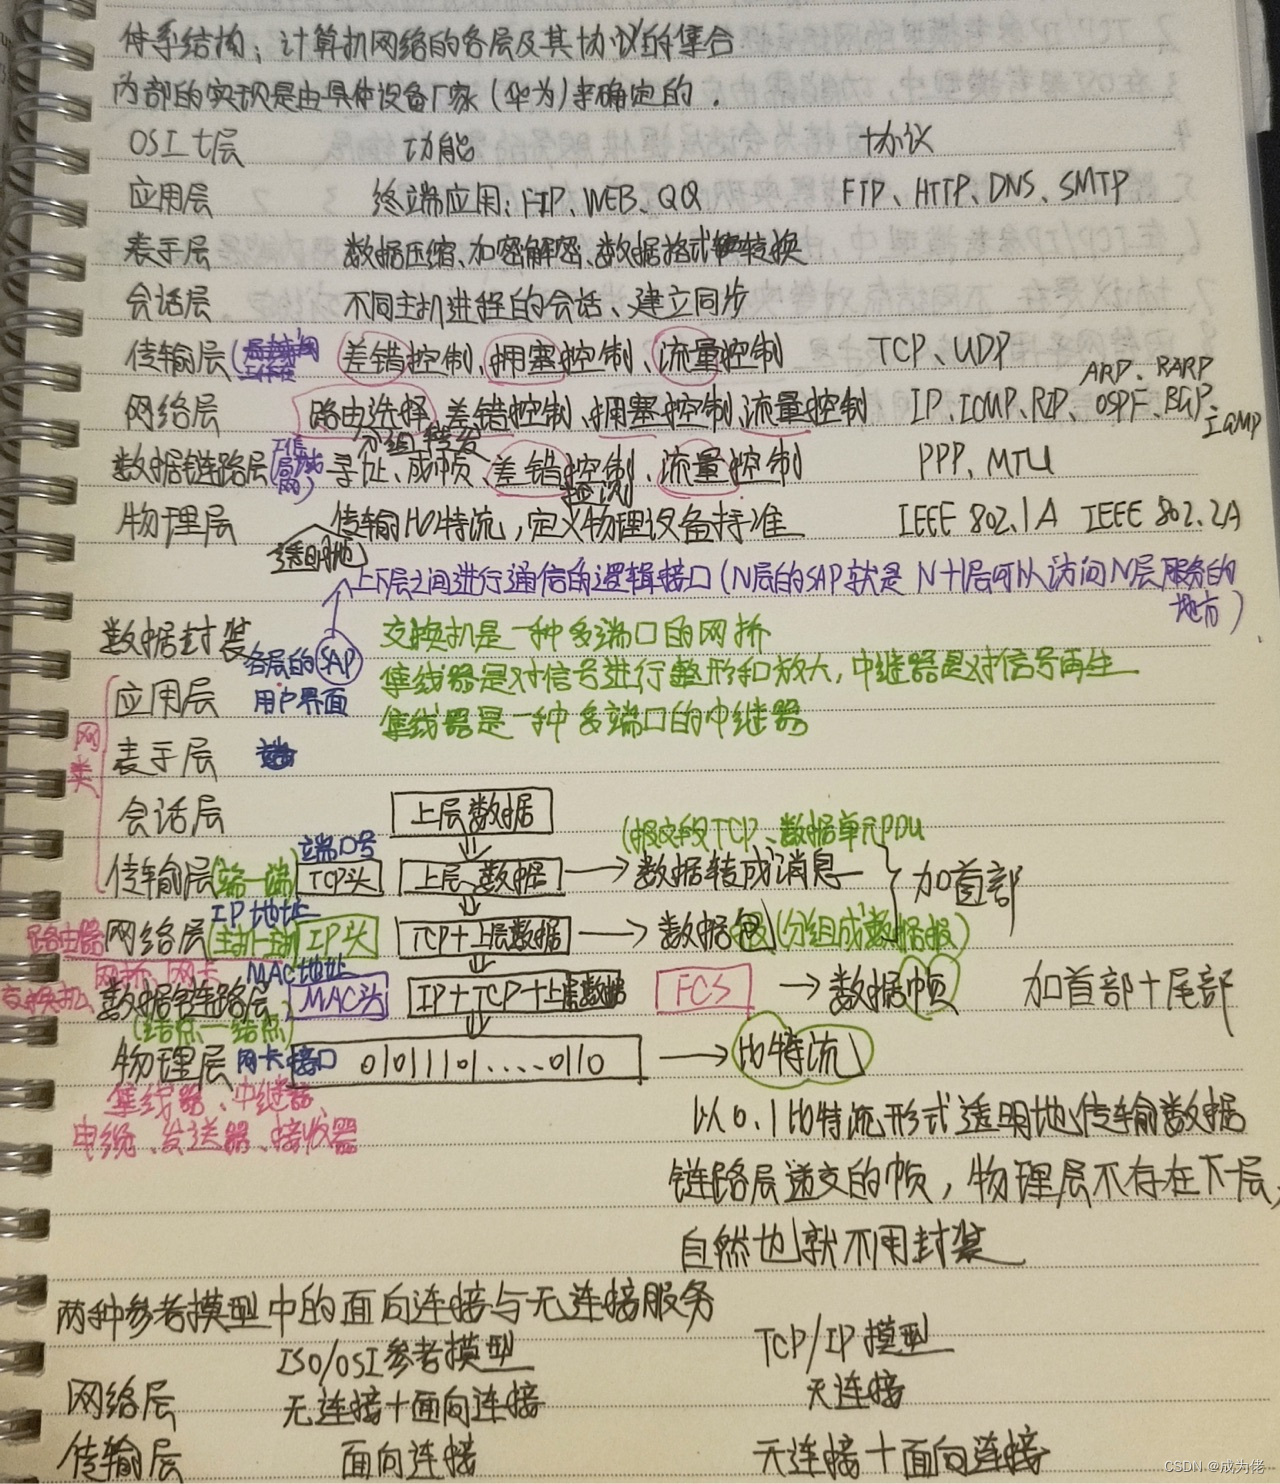 体系结构：计算机网络的各层及其协议的集合
内部的实现是由具体设备厂家（华为）来确定的．
OSI七层 功能 协议
应用层 终端应用：FIP、WEB、QQ FTP、HTTP、DNS、SMTP
表示层 数据压缩、加密解密、数据格式转换
会话层 不同主机进程的会话、建立同步
传输层 差错控制、拥塞控制、流量控制 TCP、UDP
ARP、RARP
网络层 路由选择、差错控制、拥塞控制、流量控制 IP、ICMP、RIP、OSPF、BGP、IGMP
分组转发
数据链路层 寻址、成帧、差错控制、流量控制 PPP、MTU
检测
物理层 传输比特流，定义物理设备标准 IEEE 802.1A IEEE 802.2A
透明地
上下层之间进行通信的逻辑接口（N层的SAP就是 N+1层可以访问N层服务的
地方）
数据封装 各层的SAP
交换机是一种多端口的网桥
集线器是对信号进行整形和放大，中继器是对信号再生
集线器是一种多端口的中继器
网关
应用层 用户界面
表示层
会话层 上层数据
（报文段TCP、数据单元PDU
端口号
传输层（端一端） TCP头 上层数据 → 数据转成消息 加首部
IP地址
路由器 网络层（主机一主机） IP头 TCP+上层数据 → 数据包（分组成数据报）
网桥、网卡 MAC地址
交换机 数据链路层 MAC头 IP+TCP+上层数据 FCS → 数据帧 加首部+尾部
（结点一结点）
物理层 网卡接口 01011101.....0110 → 比特流
集线器、中继器
电缆、发送器、接收器
以0.1比特流形式透明地传输数据
链路层递交的帧，物理层不存在下一层，
自然也就不用封装
两种参考模型中的面向连接与无连接服务
ISO/OSI参考模型 TCP/IP模型
网络层 无连接+面向连接 无连接
传输层 面向连接 无连接+面向连接
CSDN @成为佬